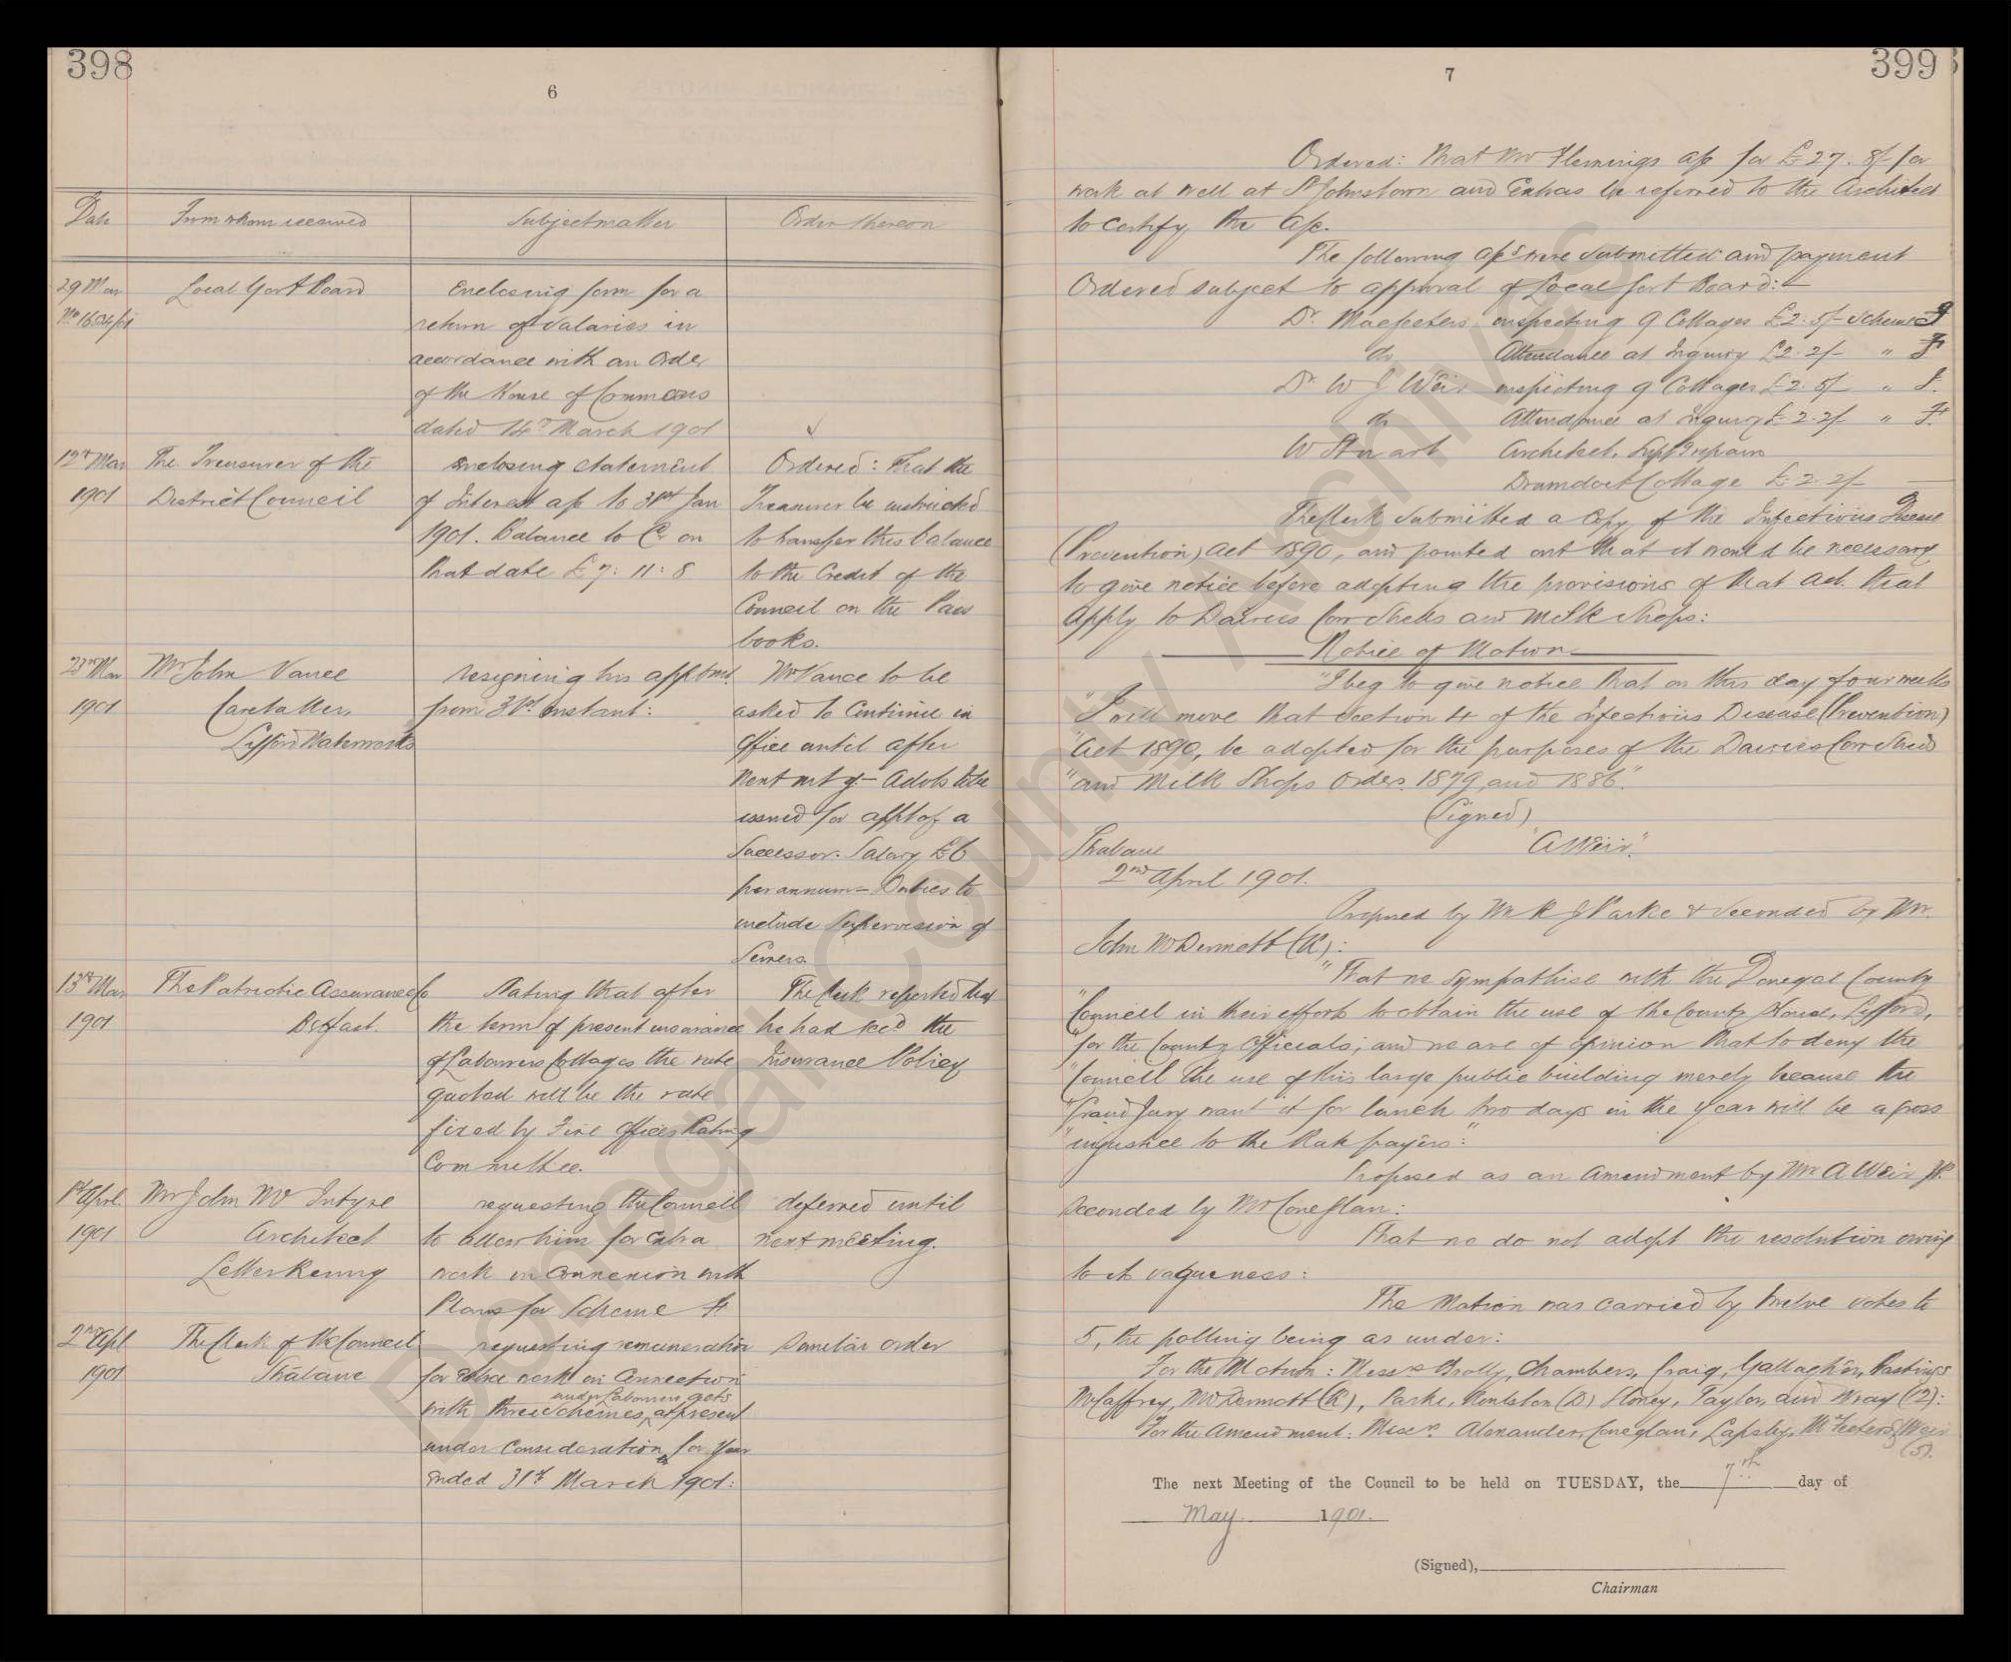 398
6
Date From whom received Subject matter Order thereon
29 Mar Local Govt Board Enclosing form for a
No 1604/01 return of Salaries in
accordance with an Order
of the House of Commons
dated 14th March 1901
12th Mar The Treasurer of the enclosing statement Ordered: That the
1901 District Council of Interest a/c to 31st Jan Treasurer be instructed
1901. Balance to Cr on to transfer this balance
that date £7:11:8 to the Credit of the
Council on the Pass
books.
23rd Mar Mr John Vance resigning his apptmt. Mr Vance to be
1901 Caretaker, from 31st instant: asked to Continue in
Lifford Waterworks office until after
next mtg - Advts to be
issued for appt of a
Successor. Salary £6
per annum - Duties to
include Supervision of
Sewers
13th Mar The Patriotic Assurance Co Stating that after The Clerk reported that
1901 Belfast. the term of present insurance he had recd the
of Labourers Cottages the rate Insurance Policy
quoted will be the rate
fixed by Fire Offices Rating
Committee.
1st April Mr John McIntyre requesting the Council deferred until
1901 Architect to allow him for extra next meeting.
Letterkenny work in connexion with
Plans for Scheme F
2nd Apl The Clerk of the Council requesting remuneration Similar order
1901 Strabane for extra work in Connection
under Labourers Acts
with three Schemes, at present
under Consideration for Year
ended 31st March 1901:
399
7
Ordered: That Mr Flemings a/c for £27. 8/- for
work at well at St Johnstown and Extras be referred to the Architect
to certify the a/c.
The following a/cs were submitted and payment
Ordered subject to approval of Local Govt Board:-
Dr. Macfeeters inspecting 9 Cottages £2. 5/- Scheme F
do Attendance at Inquiry £2. 2/- " F
Dr. W J Weir inspecting 9 Cottages £2. 5/- " F.
do Attendance at Inquiry £2. 2/- " F.
W Stuart Architect,
Cottage £2. 2/-
The Clerk submitted a Copy of the Infectious Disease
(Prevention) Act 1890, and pointed out that it would be necessary
to give notice before adopting the provisions of that Act. that
apply to Dairies Cow Sheds and Milk Shops:
Notice of Motion
"I beg to give notice that on this day four weeks
"I will move that Section 4 of the Infectious Disease (Prevention)
"Act 1890, be adopted for the purposes of the Dairies Cow Sheds
"and Milk Shops Order. 1879 and 1886."
(Signed)
Strabane "A Weir".
2nd April 1901.
Proposed by Mr R J Parke & Seconded by Mr.
John McDermott (R):
"That we sympathise with the Donegal County
"Council in their efforts to obtain the use of the County House, Lifford,
"for the County Officials; and we are of opinion that to deny the
"Council the use of this large public building merely because the
"Grand Jury want it for lunch two days in the year will be a gross
"injustice to the Rate payers:"
Proposed as an Amendment by Mr. A Weir JP.
Seconded by Mr Coneglan:
That we do not adopt the resolution owing
to its vagueness:
The Motion was carried by twelve votes to
5, the polling being as under:
For the Motion: Messrs Brolly, Chambers, Craig, Gallagher, Hastings
McCaffrey, McDermott (R), Parke, Stoney, Taylor, and Wray (12):
For the Amendment: Messrs. Alexander, Coneglan, Lapsley, McFeeters & Weir
(5).
The next Meeting of the Council to be held on TUESDAY, the 7th day of
May 1901.
(Signed),
Chairman
Donegal County Archives